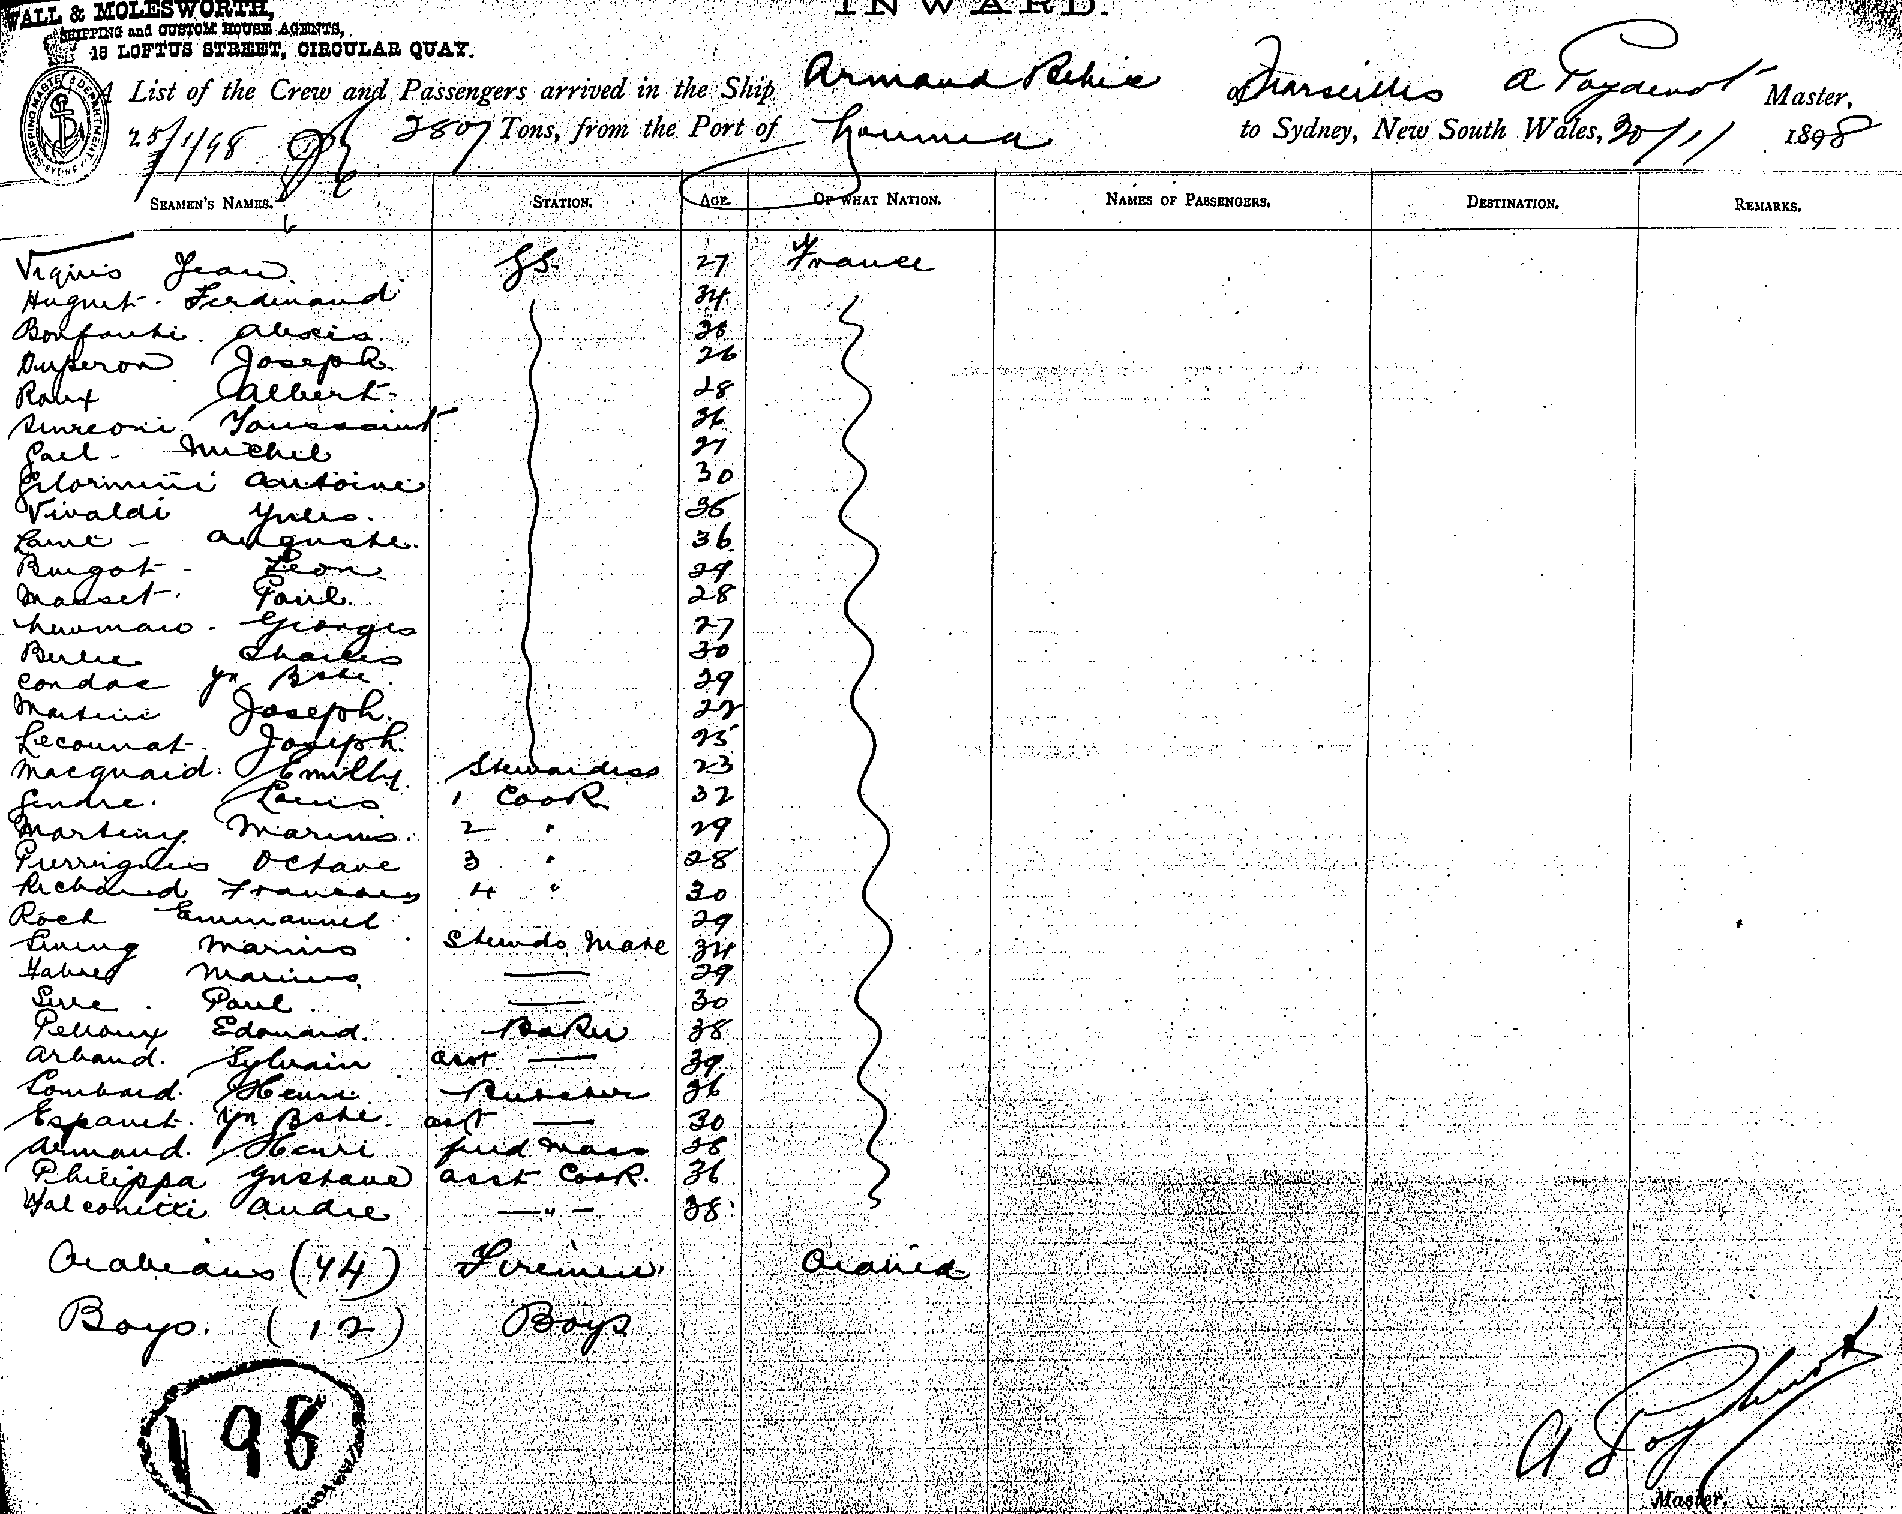 WALL & MOLESWORTH,
SHIPPING and CUSTOM HOUSE AGENTS,
18 LOFTUS STREET, CIRCULAR QUAY.
INWARD.
A List of the Crew and Passengers arrived in the Ship Armand Behic of Marseilles A Poydenot Master,
25/1/98 2807 Tons, from the Port of Noumea to Sydney, New South Wales, 30/11 1898
SEAMEN'S NAMES. STATION. AGE OF WHAT NATION. NAMES OF PASSENGERS. DESTINATION. REMARKS.
Jean GS. 27 France
Huguet. Ferdinand 34
Bonfanti. Alexis
Duperon Joseph 26
Roux Albert 28
Toussaint 36
Gail - Michel 27
Antoine 30
Vivaldi Jules. 36
Auguste. 36
Burgot - Leon 29
Masset. Paul. 28
Georges 27
Charles 30
Condac Jn Bste. 29
Martini Joseph.
Joseph. 25
Macquaid. Emilly Stewardess 23
Gendre. Louis 1 Cook 32
Martiny Marius. 2 " 29
Octave 3 " 28
Richard Francois 4 " 30
Roch Emmanuel 29
Marius Stewds Mate 34
Marius 29
Paul 30
Pelloux Edouard. Baker 38
Arbaud. Sylvain asst 39
Lombard. Henri Butcher 36
Espanet. Jn Bste. asst 30
Armaud. Henri 38
Philippa Gustave asst Cook. 36
Andre — " — 38
Arabians (44) Firemen Arabia
Boys. (12) Boys
198
A Poydenot
Master.